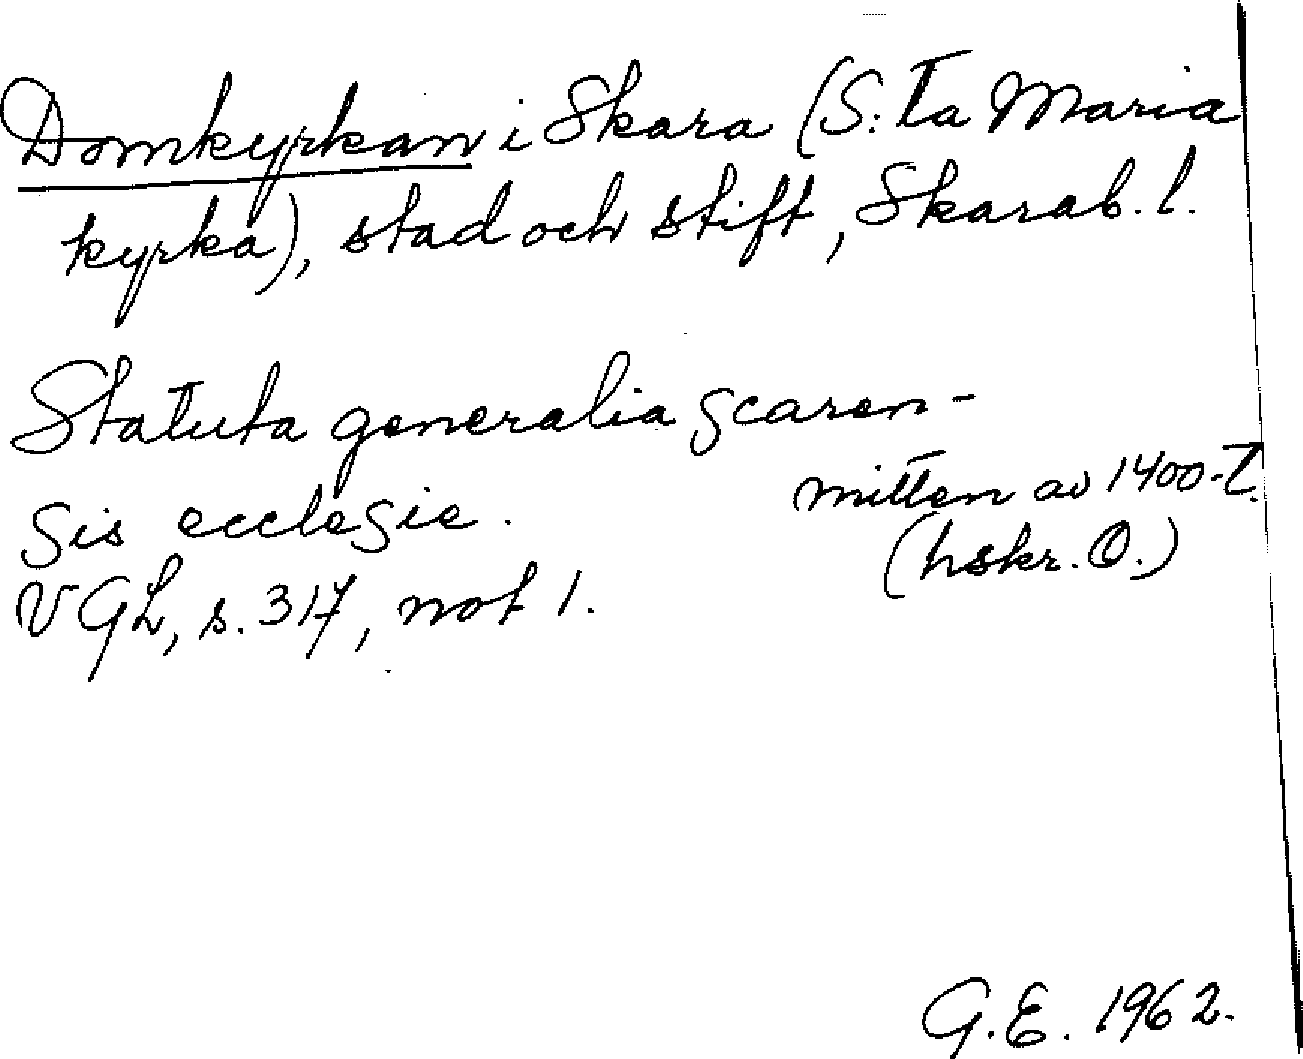 Domkyrkan i Skara (S:ta Maria
kyrka), stad och stift, Skarab. l.
Statuta generalia scaren-
sis ecclesie.
mitten av 1400-t.
(hskr. O.)
VGL, s. 317, not 1.
G.E. 1962.